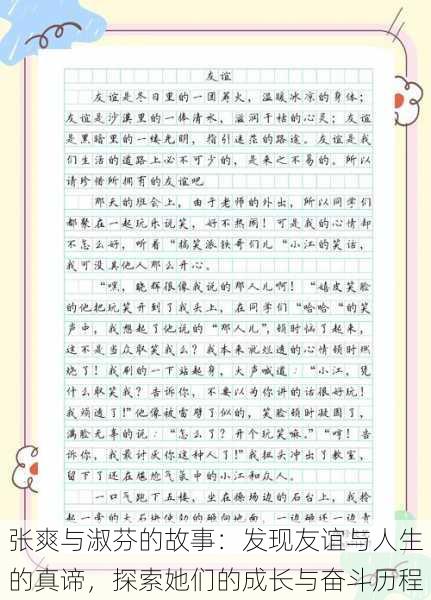 友谊
友谊是冬日里的一团篝火，温暖冰凉的身体；
友谊是沙漠里的一传清水，滋润干枯的心灵；友谊
是黑暗里的一缕光明，指引迷茫的路途。友谊是我
们生活的道路上必不可少的，是来之不易的。所以
请珍惜所拥有的友谊吧
那天的班会上，由于老师的外出，所以同学们
都聚在一起玩乐说笑，好不热闹！可是我的心情却
不怎么好，听着“搞笑派铁哥们儿“小江的笑话，
我可没其他人那么开心。
“嘿，晓辉很像我说的那人儿啊！“嬉皮笑脸
的他把玩笑开到了我头上，在同学们“哈哈“的笑
声中，我想起了他说的“那人儿”，顿时恼了起来，
这不是当众取笑我么？我本来就烂透的心情顿时燃
烧了！我刷的一下站起身，大声喊道：“小江，凭
什么取笑我？告诉你，不要以为你讲的话很好玩！
我烦透了！”他像被雷劈了似的，笑脸顿时凝固了，
满脸无辜的说：“怎么了？开个玩笑嘛。”“哼！告
诉你，我最讨厌你这种人了！”我扭头冲出了教室，
留下了还在尴尬气氛中的小江和众人。
一口气跑下五楼，坐在操场边的石台上，我拎
起一旁的大石块使劲的砸向地面，一边砸还一边青
张爽与淑芬的故事：发现友谊与人生
的真谛，探索她们的成长与奋斗历程